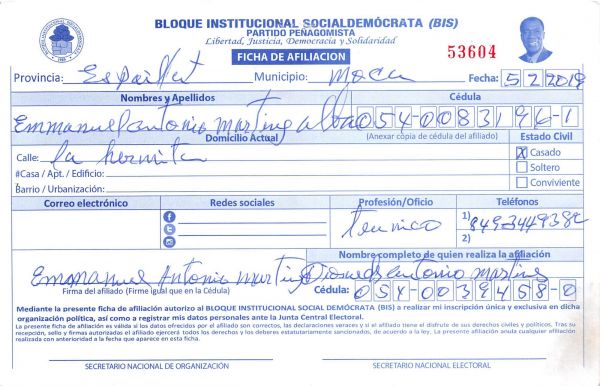 BLOQUE INSTITUCIONAL SOCIALDEMÓCRATA (BIS)
PARTIDO PEÑAGOMISTA
Libertad, Justicia, Democracia y Solidaridad
FICHA DE AFILIACION
53604
Provincia: Espaillat Municipio: Moca Fecha: 5 2 2019
Nombres y Apellidos Cédula
Emmanuel antonio martinez 054-0083196-1
Domicilio Actual (Anexar copia de cédula del afiliado) Estado Civil
Calle: la hermita X Casado
#Casa / Apt. / Edificio: Soltero
Barrio / Urbanización: Conviviente
Correo electrónico Redes sociales Profesión/Oficio Teléfonos
tecnico 1)
2)
Nombre completo de quien realiza la afiliación
Emmanuel Antonio Martinez antonio martinez
Firma del afiliado (Firme igual que en la Cédula) Cédula: 054-0039458-0
Mediante la presente ficha de afiliación autorizo al BLOQUE INSTITUCIONAL SOCIAL DEMÓCRATA (BIS) a realizar mi inscripción única y exclusiva en dicha
organización política, así como a registrar mis datos personales ante la Junta Central Electoral.
La presente ficha de afiliación es válida si los datos ofrecidos por el afiliado son correctos, las declaraciones veraces y si el afiliado tiene el disfrute de sus derechos civiles y políticos. Tras su
recepción, sello y firmas autorizados el afiliado ejercerá todos los derechos y los deberes estatutariamente sancionados, de acuerdo a la ley. La presente afiliación anula cualquier afiliación
realizada con anterioridad a la fecha que aparece en esta ficha.
SECRETARIO NACIONAL DE ORGANIZACIÓN SECRETARIO NACIONAL ELECTORAL